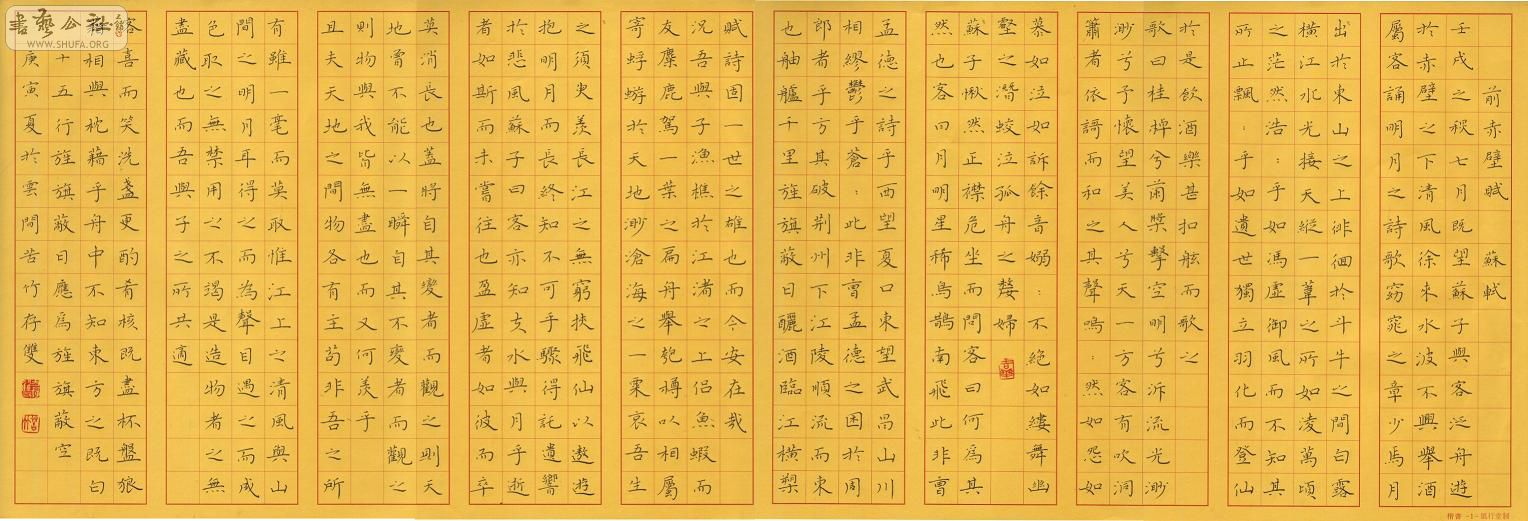 前赤壁賦 蘇軾
壬戌之秋七月既望蘇子與客泛舟遊
於赤壁之下清風徐來水波不興舉酒
屬客誦明月之詩歌窈窕之章少焉月
出於東山之上徘徊於斗牛之間白露
橫江水光接天縱一葦之所如凌萬頃
之茫然浩:乎如馮虛御風而不知其
所止飄:乎如遺世獨立羽化而登仙
於是飲酒樂甚扣舷而歌之
歌曰桂棹兮蘭槳擊空明兮泝流光渺
渺兮予懷望美人兮天一方客有吹洞
簫者依謌而和之其聲嗚:然如怨如
慕如泣如訴餘音嫋:不絕如縷舞幽
壑之潛蛟泣孤舟之嫠婦
蘇子愀然正襟危坐而問客曰何為其
然也客曰月明星稀烏鵲南飛此非曹
孟德之詩乎西望夏口東望武昌山川
相繆鬱乎蒼:此非曹孟德之困於周
郎者乎方其破荆州下江陵順流而東
也舳艫千里旌旗蔽日釃酒臨江橫槊
賦詩固一世之雄也而今安在哉
況吾與子漁樵於江渚之上侶魚蝦而
友麋鹿駕一葉之扁舟舉匏樽以相屬
寄蜉蝣於天地渺滄海之一粟哀吾生
之須臾羨長江之無窮挾飛仙以遨遊
抱明月而長終知不可乎驟得託遺響
於悲風蘇子曰客亦知夫水與月乎逝
者如斯而未嘗往也盈虛者如彼而卒
莫消長也蓋將自其變者而觀之則天
地曾不能以一瞬自其不變者而觀之
則物與我皆無盡也而又何羨乎
且夫天地之間物各有主苟非吾之所
有雖一毫而莫取惟江上之清風與山
間之明月耳得之而為聲目遇之而成
色取之無禁用之不竭是造物者之無
盡藏也而吾與子之所共適
客喜而笑洗盞更酌肴核既盡杯盤狼
藉相與枕藉乎舟中不知東方之既白
十五行旌旗蔽日應為旌旗蔽空
庚寅夏於雲間苦竹存雙
書藝公社
WWW.SHUFA.ORG
楷書 -1- 風行堂制